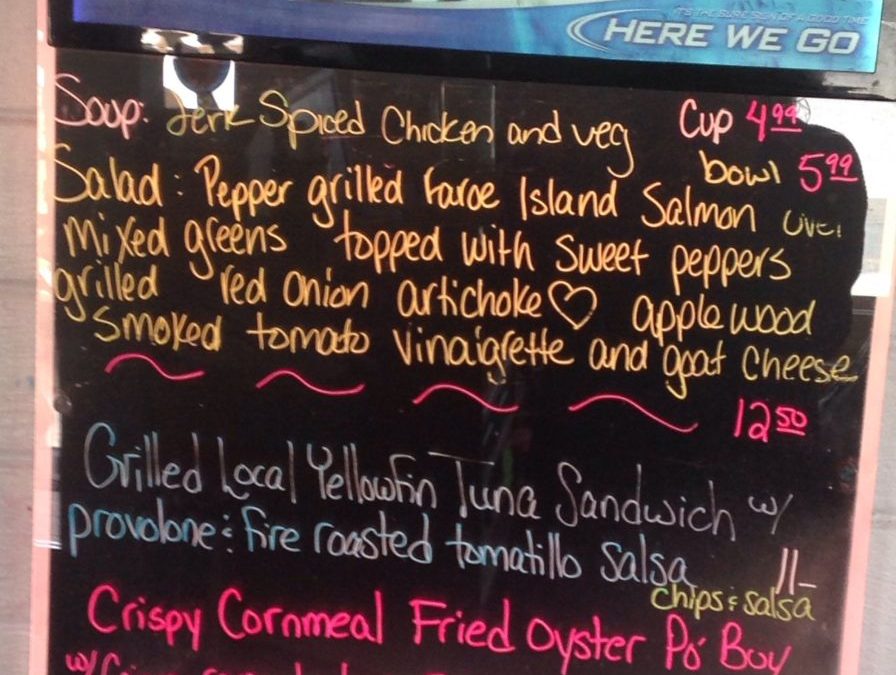 IT'S THE SURE SIGN OF A GOOD TIME
HERE WE GO
Soup: Jerk Spiced Chicken and veg Cup 4.99
bowl 5.99
Salad: Pepper grilled Faroe Island Salmon over
mixed greens topped with sweet peppers
grilled red onion artichoke♡ applewood
smoked tomato vinaigrette and goat cheese
12.50
Grilled Local Yellowfin Tuna Sandwich w/
provolone & fire roasted tomatillo salsa 11-
chips & salsa
Crispy Cornmeal Fried Oyster Po' Boy
w/